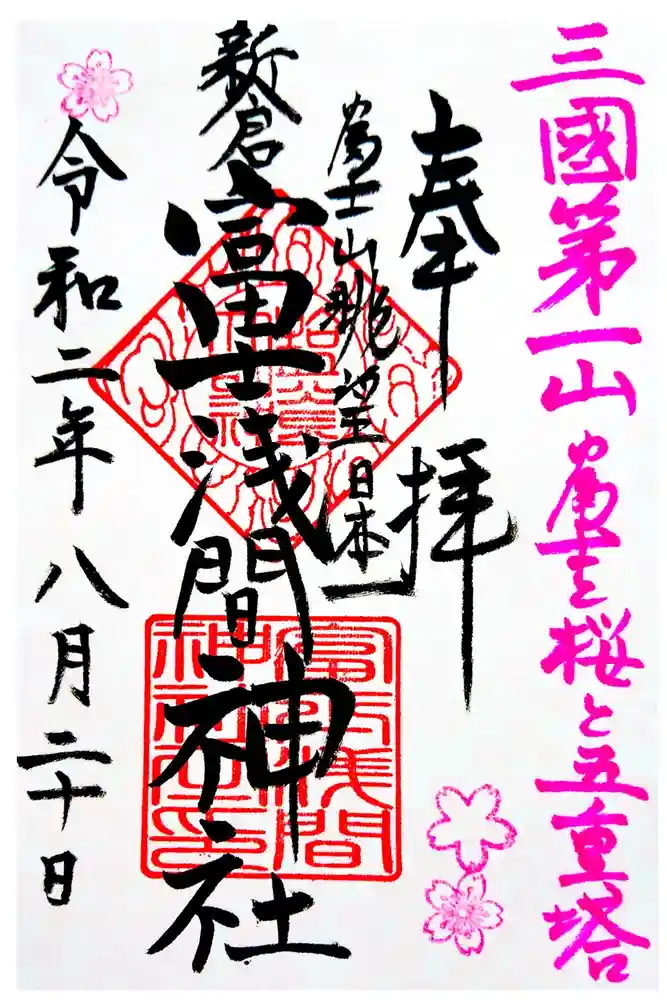 三國第一山 富士と桜と五重塔
奉拝
富士山眺望日本一
新倉富士浅間神社
令和二年八月二十日